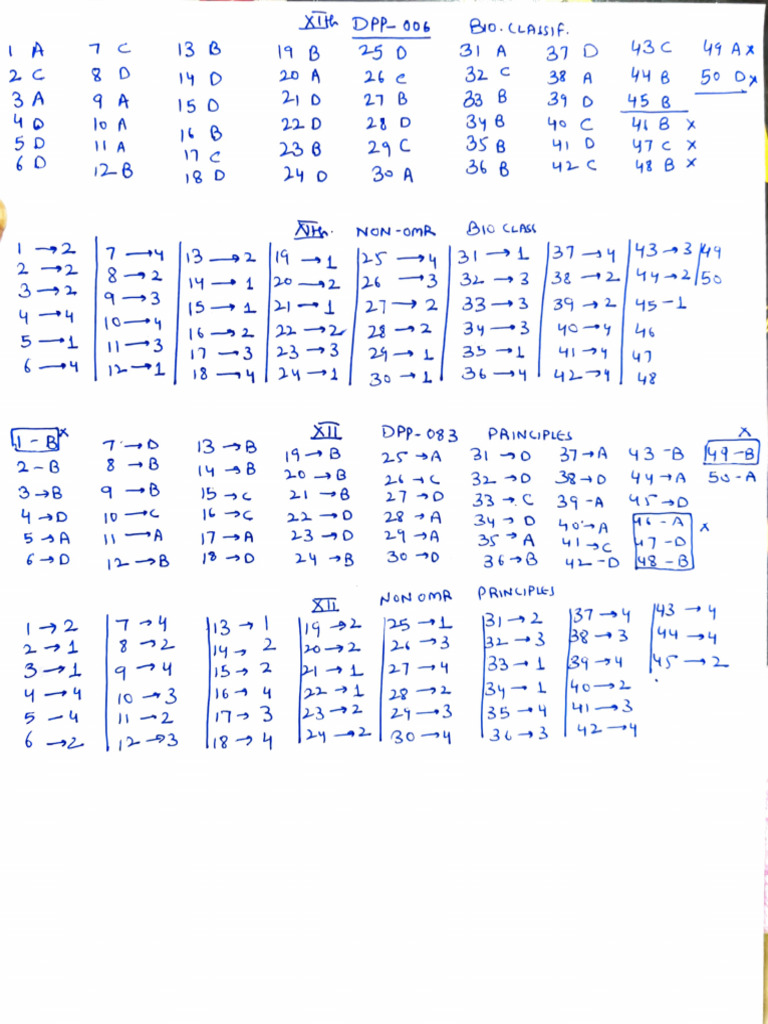 XIth DPP-006 BIO. CLASSIF.
1 A 7 C 13 B 19 B 25 D 31 A 37 D 43 C 49 A x
2 C 8 D 14 D 20 A 26 C 32 C 38 A 44 B 50 D x
3 A 9 A 15 D 21 D 27 B 33 B 39 D 45 B
4 D 10 A 16 B 22 D 28 D 34 B 40 C 46 B x
5 D 11 A 17 C 23 B 29 C 35 B 41 D 47 C x
6 D 12 B 18 D 24 D 30 A 36 B 42 C 48 B x
XIth. NON-OMR BIO CLASS
1 → 2 7 → 4 13 → 2 19 → 1 25 → 4 31 → 1 37 → 4 43 → 3 49
2 → 2 8 → 2 14 → 1 20 → 2 26 → 3 32 → 3 38 → 2 44 → 2 50
3 → 2 9 → 3 15 → 1 21 → 1 27 → 2 33 → 3 39 → 2 45 - 1
4 → 4 10 → 4 16 → 2 22 → 2 28 → 2 34 → 3 40 → 4 46
5 → 1 11 → 3 17 → 3 23 → 3 29 → 1 35 → 1 41 → 4 47
6 → 4 12 → 1 18 → 4 24 → 1 30 → 1 36 → 4 42 → 4 48
XII DPP-083 PRINCIPLES
1 - B x 7 → D 13 → B 19 → B 25 → A 31 → D 37 → A 43 - B 49 - B x
2 - B 8 → B 14 → B 20 → B 26 → C 32 → D 38 → D 44 → A 50 - A
3 → B 9 → B 15 → C 21 → B 27 → D 33 → C 39 - A 45 → D
4 → D 10 → C 16 → C 22 → D 28 → A 34 → D 40 → A 46 - A
5 → A 11 → A 17 → A 23 → D 29 → A 35 → A 41 → C 47 - D x
6 → D 12 → B 18 → D 24 → B 30 → D 36 → B 42 - D 48 - B
XII NON OMR PRINCIPLES
1 → 2 7 → 4 13 → 1 19 → 2 25 → 1 31 → 2 37 → 4 43 → 4
2 → 1 8 → 2 14 → 2 20 → 2 26 → 3 32 → 3 38 → 3 44 → 4
3 → 1 9 → 4 15 → 2 21 → 1 27 → 4 33 → 1 39 → 4 45 → 2
4 → 4 10 → 3 16 → 4 22 → 1 28 → 2 34 → 1 40 → 2
5 - 4 11 → 2 17 → 3 23 → 2 29 → 3 35 → 4 41 → 3
6 → 2 12 → 3 18 → 4 24 → 2 30 → 4 36 → 3 42 → 4